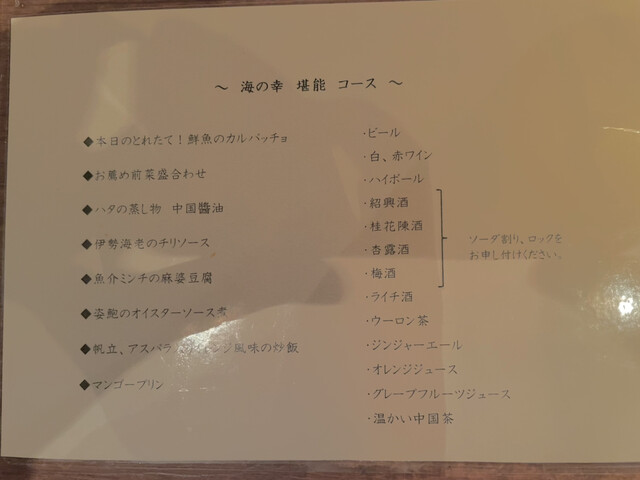 ～ 海の幸 堪能 コース ～
◆本日のとれたて！鮮魚のカルパッチョ
◆お薦め前菜盛合わせ
◆ハタの蒸し物 中国醬油
◆伊勢海老のチリソース
◆魚介ミンチの麻婆豆腐
◆姿鮑のオイスターソース煮
◆帆立、アスパラ 風味の炒飯
◆マンゴープリン
・ビール
・白、赤ワイン
・ハイボール
・紹興酒
・桂花陳酒
・杏露酒
・梅酒
・ライチ酒
・ウーロン茶
・ジンジャーエール
・オレンジジュース
・グレープフルーツジュース
・温かい中国茶
ソーダ割り、ロックを
お申し付けください。